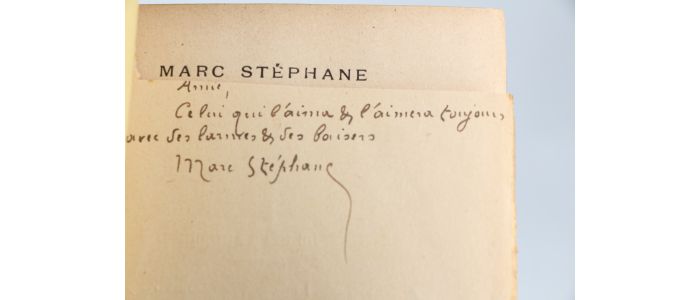 MARC STÉPHANE
Anne,
Celui qui l'aima & l'aimera toujours
avec ses larmes & ses baisers
Marc Stéphane